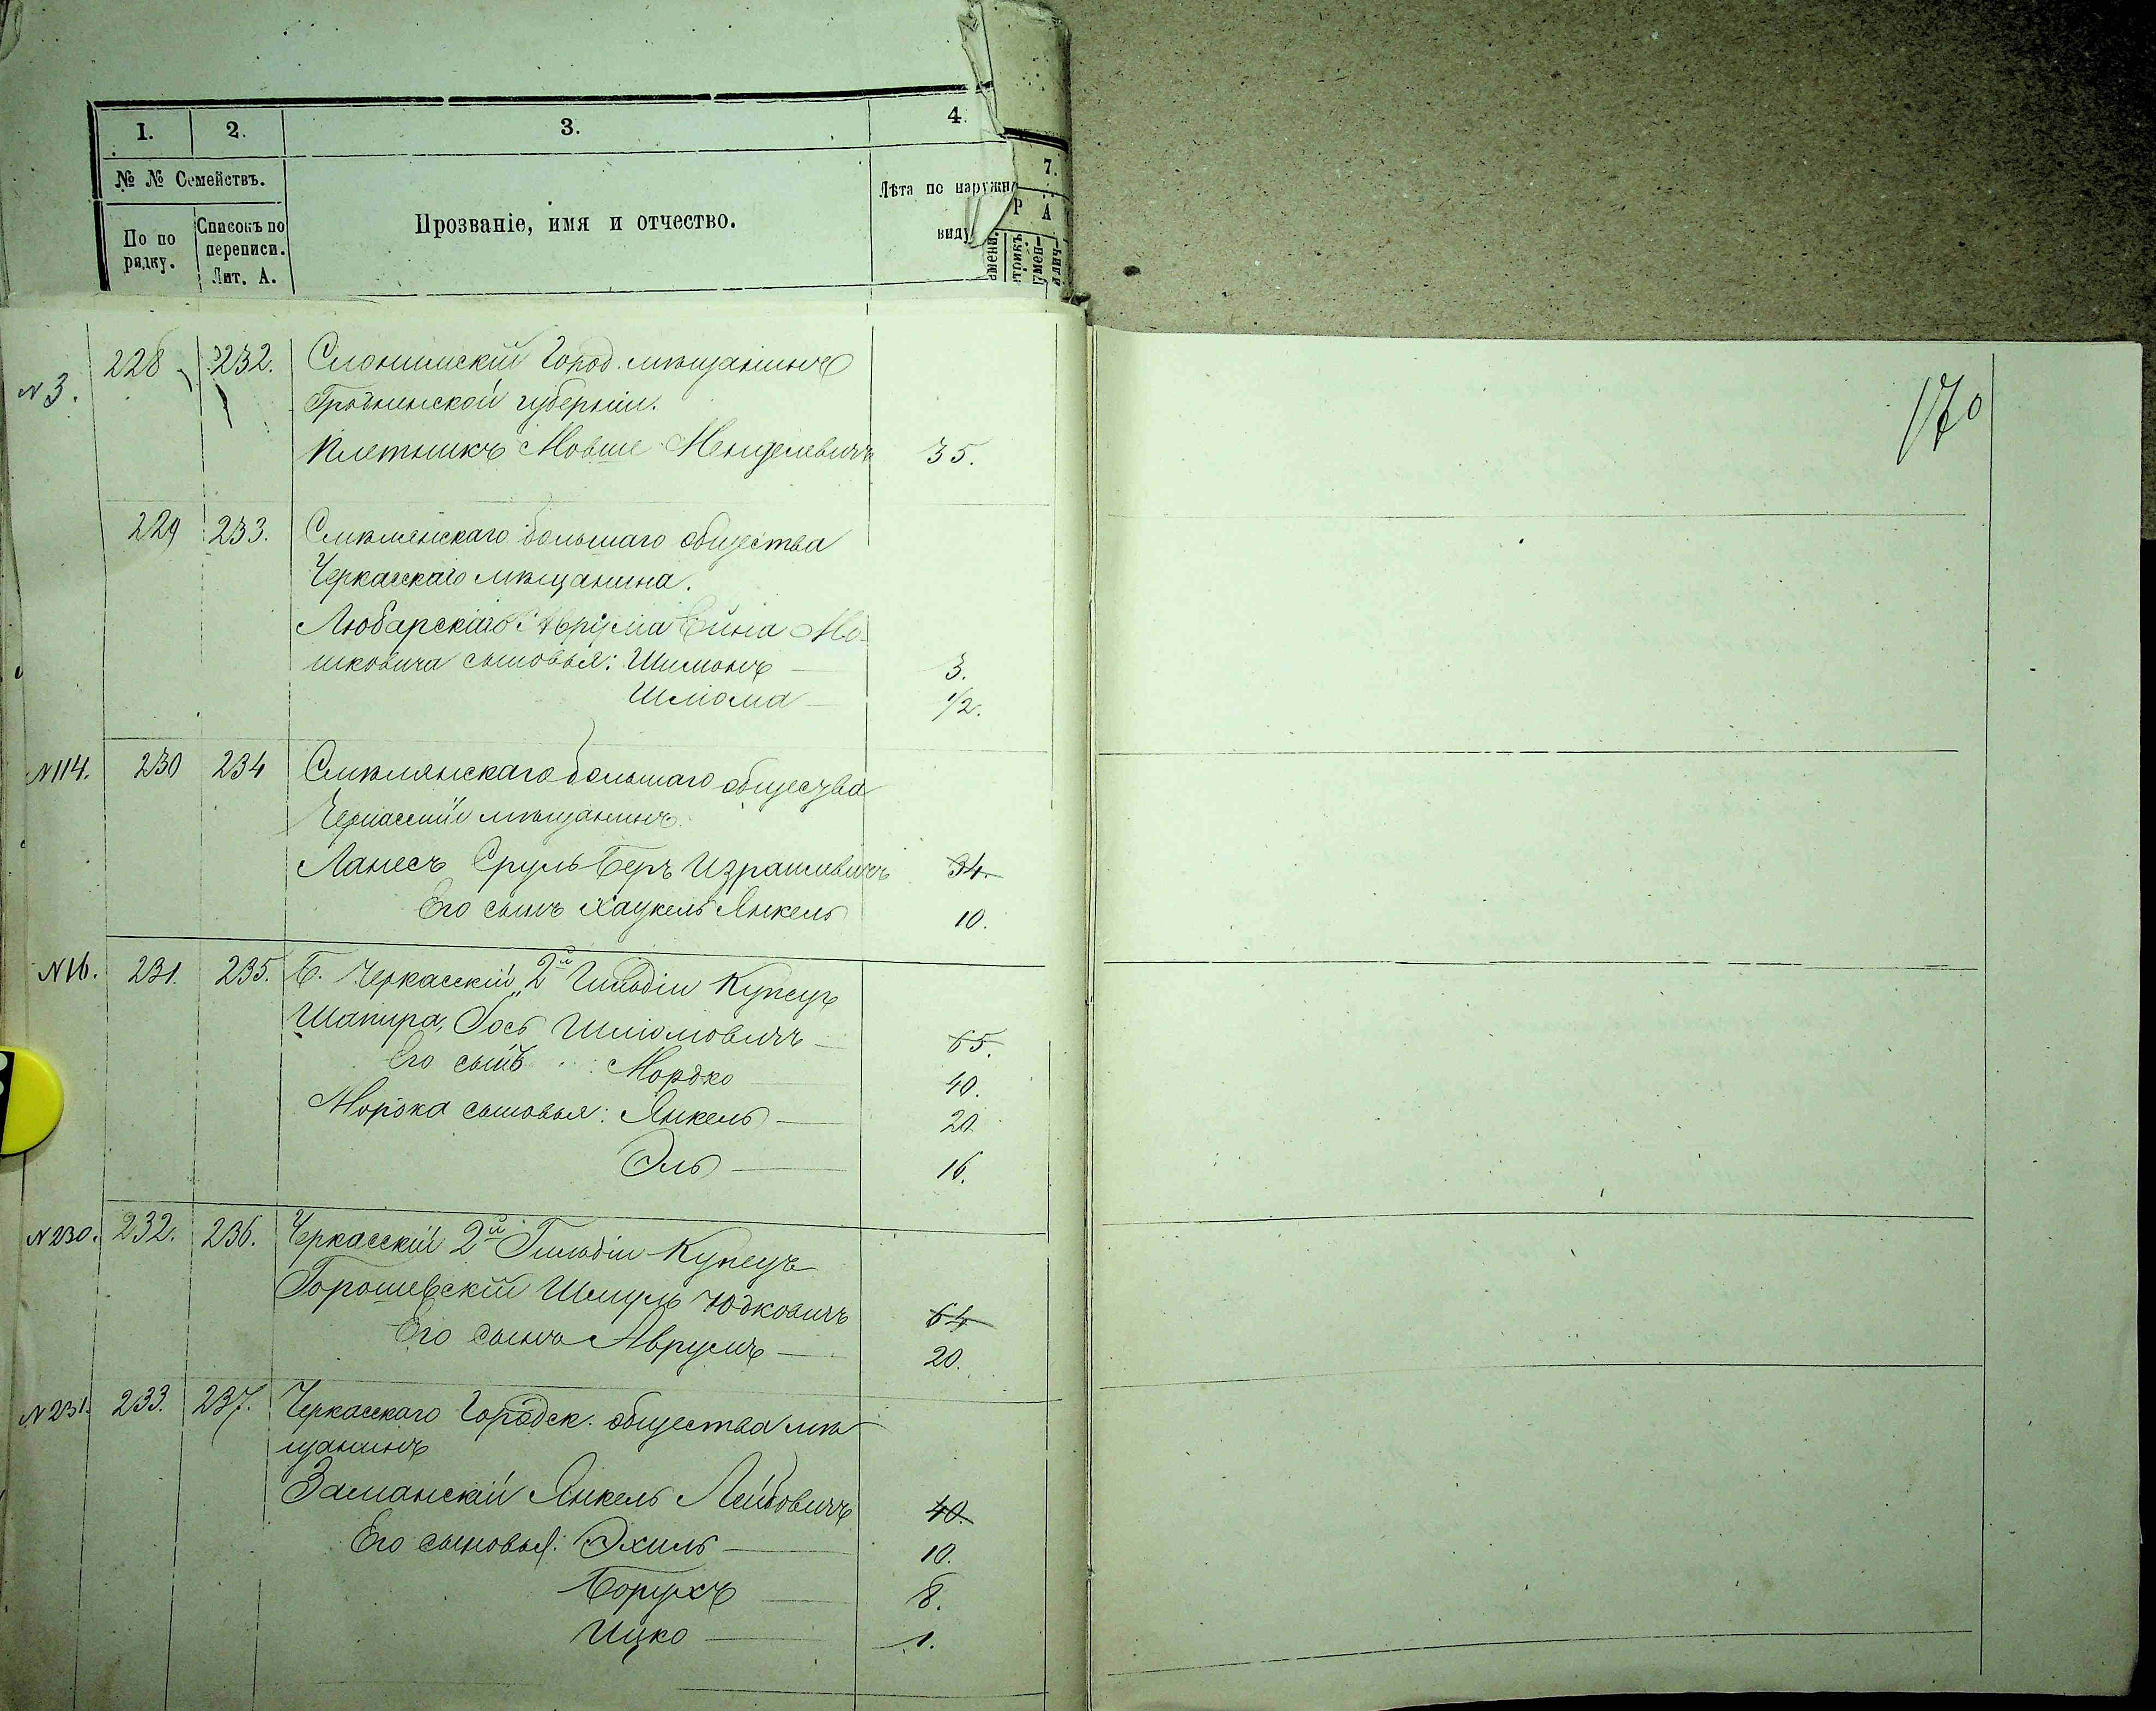 1. 2. 3. 4. 7.
№ № Семействъ.
По по рядку.
Списокъ по переписи. Лит. А.
Прозваніе, имя и отчество.
Лѣта по наружн
виду
Р А
N 3. 228 232. Слонимскій Город. мѣщанинъ
Гродненской губерніи.
Плетникъ Мовше Менделевичъ 35.
229 233. Смѣлянскаго большаго общества
Черкасскаго мѣщанина.
Любарскаго Аврума Сина Мо-
шковича сыновья: Шимонъ 3.
Шліома 1/2.
N 114. 230 234 Смѣлянскаго большаго общества
Черкасскій мѣщанинъ
Ланесъ Сруль Беръ Израилевичъ 34.
Его сынъ Хацкель Янкель 10.
N 16. 231. 235. Б. Черкасскій 2й Гильдіи Купецъ
Шапира, Іось Шліомовичъ 65.
Его сынъ Мордко 40.
Мордка сыновья: Янкель 20
Эль 16.
N 230. 232. 236. Черкасскій 2й Гильдіи Купецъ
Горошевскій Шмуль Юдковичъ 64
Его сынъ Аврумъ 20.
N 231. 233. 237. Черкасскаго Городск. общества мѣ
щанинъ
Заманскій Янкель Лейбовичъ 40.
Его сыновья: Эхиль 10.
Борухъ 8.
Ицко 1.
170